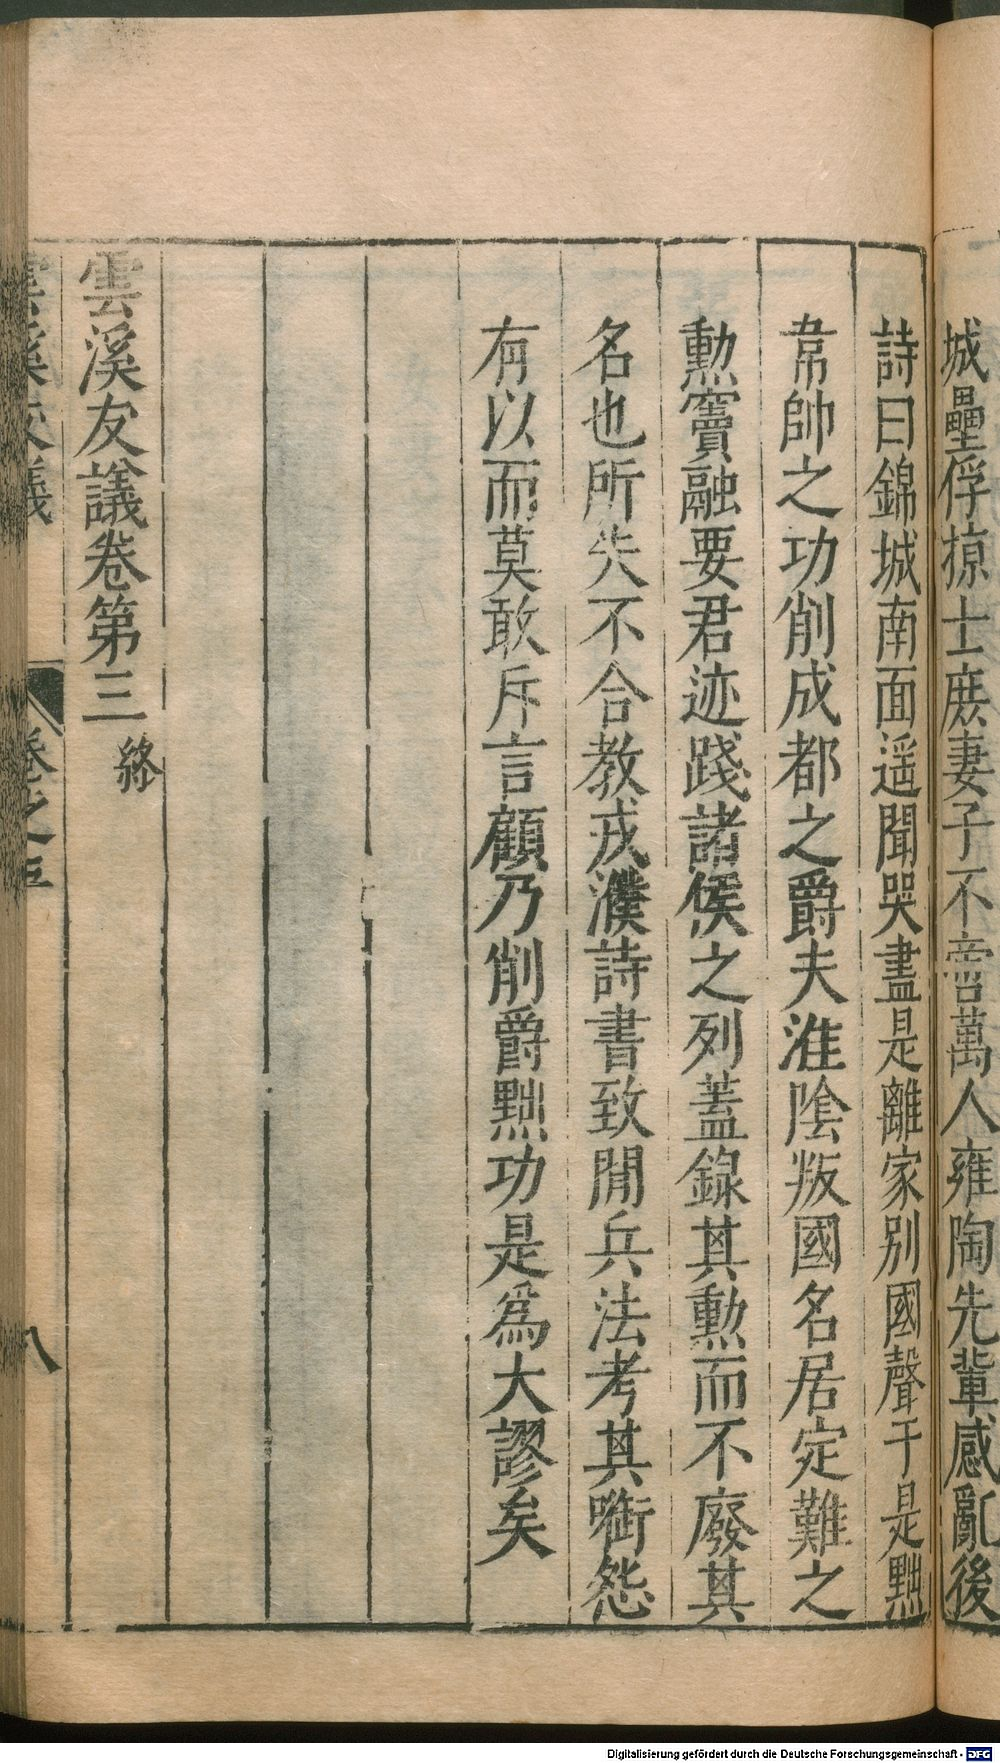 城壘俘掠士庶妻子不啻萬人雍陶先輩感亂後
詩曰錦城南面遥聞哭盡是離家別國聲于是黜
韋帥之功削成都之爵夫淮陰叛國名居定難之
勲竇融要君迹踐諸侯之列蓋錄其勲而不廢其
名也所失不合教戎濮詩書致閒兵法考其啣怨
有以而莫敢斥言顧乃削爵黜功是爲大謬矣
雲溪友議卷第三 終
雲溪友議 卷之三 八
Digitalisierung gefördert durch die Deutsche Forschungsgemeinschaft - DFG